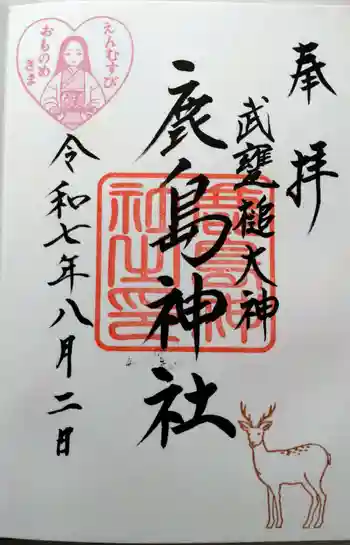 奉拝
武甕槌大神
鹿島神社
令和七年八月二日
えんむすび
おものめ
さま